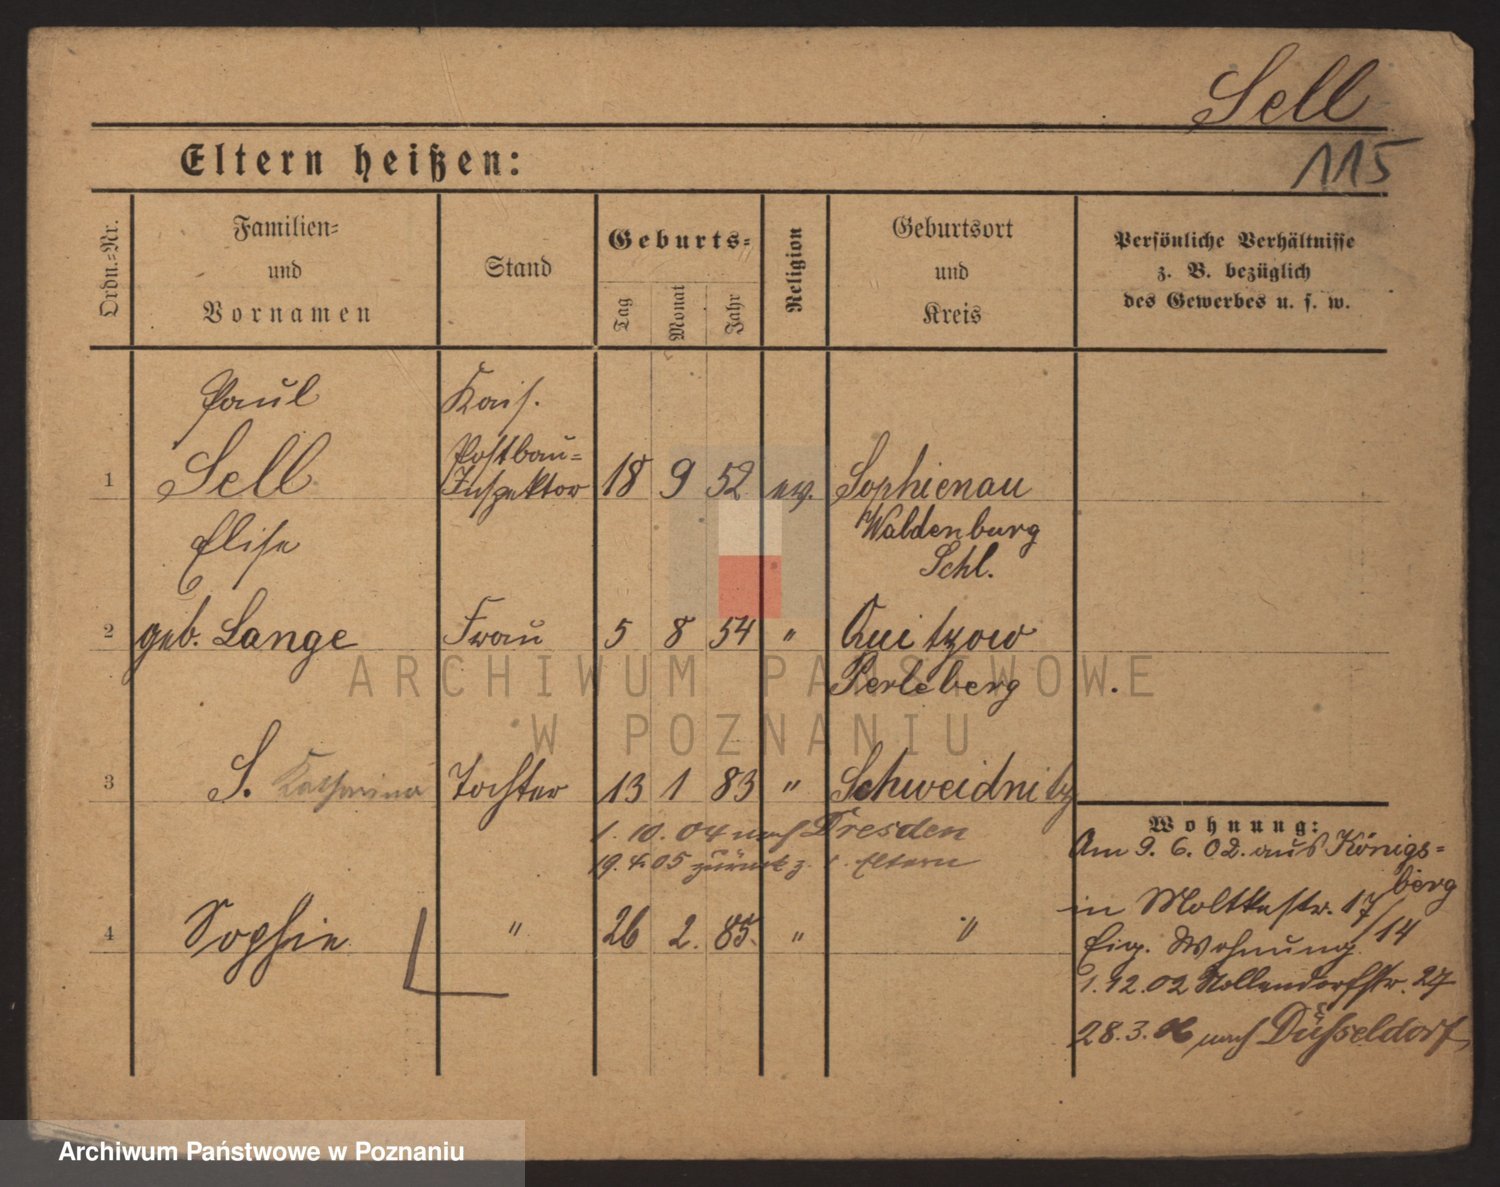 Sell
115
Eltern heißen:
Ordn.-Nr.
Familien-
und
Vornamen
Stand
Geburts-
Tag
Monat
Jahr
Religion
Geburtsort
und
Kreis
Persönliche Verhältnisse
z. B. bezüglich
des Gewerbes u. s. w.
Paul
Kais.
Postbau-
1 Sell Inspektor 18 9 52 ev. Sophienau
Waldenburg
Elise
Schl.
2 geb. Lange Frau 5 8 54 " Quitzow
Perleberg
3 S. Katharina Tochter 13 1 83 " Schweidnitz
1. 10. 04 nach Dresden
19. 4. 05 zurück z. Eltern
4 Sophie " 26 2. 85. " "
Wohnung:
Am 9. 6. 02. aus Königs-
berg
in Moltkestr. 17/14
Eig. Wohnung
1. 12. 02 Nollendorfstr. 27
28. 3. 06 nach Düsseldorf
ARCHIWUM PAŃSTWOWE
W POZNANIU
Archiwum Państwowe w Poznaniu